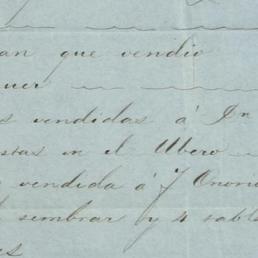 an que vendio
uer
s vendidas á Jn
stas en el Ubero
vendida á J Onori
sembrar y 4 tabl
es